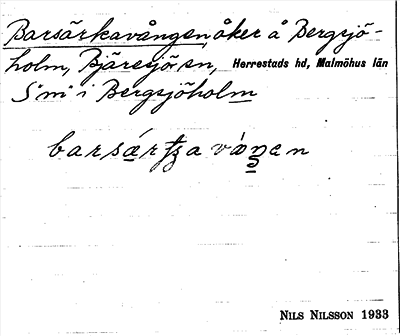 Barsärkavången, åker å Bergsjö-
holm, Bjäresjö sn, Herrestads hd, Malmöhus län
S°m° i Bergsjöholm
Nils Nilsson 1933